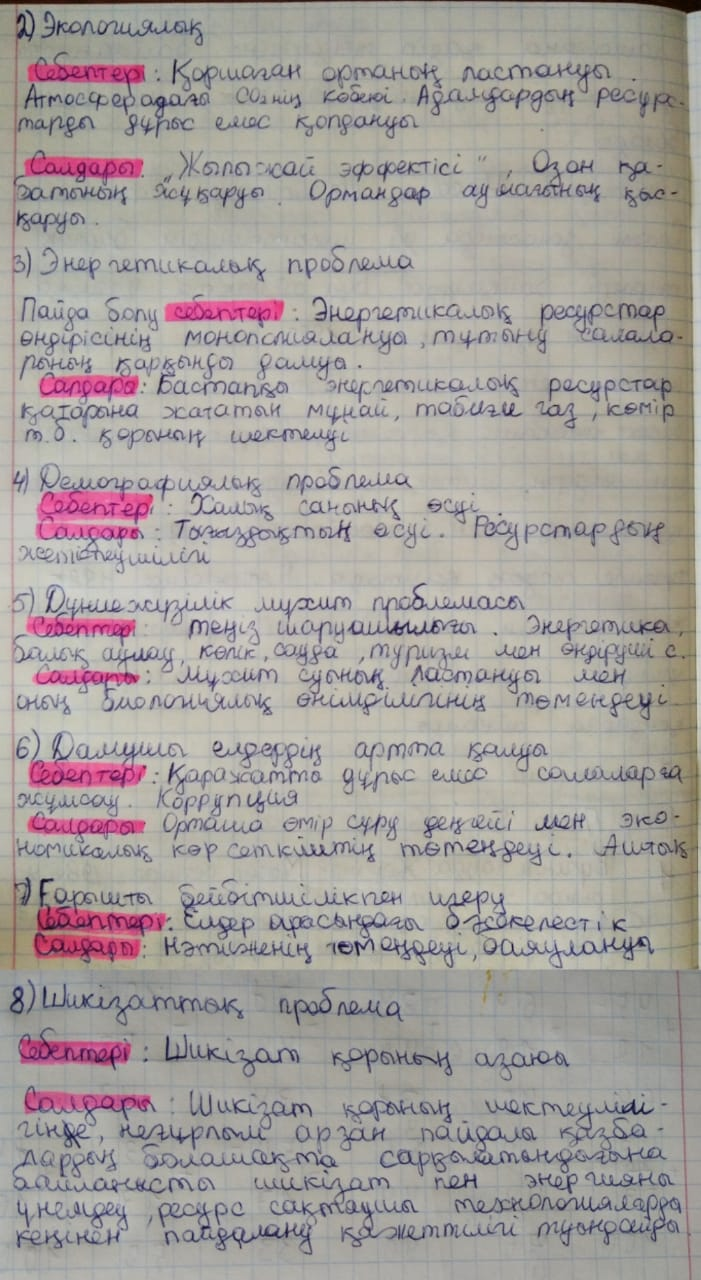 2) Экологиялық
Себептері: Қоршаған ортаның ластануы.
Атмосферадағы CO₂нің көбеюі. Адамдардың ресурс-
тарды дұрыс емес қолдануы
Салдары. „Жылыжай эффектісі", Озон қа-
батының жұқаруы. Ормандар аумағының қыс-
қаруы.
3) Энергетикалық проблема
Пайда болу себептері: Энергетикалық ресурстар
өндірісінің монополиялануы, тұтыну салала-
рының қарқынды дамуы.
Салдары: Бастапқы энергетикалық ресурстар
қатарына жататын мұнай, табиғи газ, көмір
т.б. қорының шектелуі
4) Демографиялық проблема
Себептері: Халық санының өсуі.
Салдары: Тығыздықтың өсуі. Ресурстардың
жетіспеушілігі
5) Дүниежүзілік мұхит проблемасы
Себептері: теңіз шаруашылығы. Энергетика,
балық аулау, көлік, сауда, туризм мен өндіруші с.
Салдары: Мұхит суының ластануы мен
оның биологиялық өнімділігінің төмендеуі.
6) Дамушы елдердің артта қалуы
Себептері: Қаражатты дұрыс емес салаларға
жұмсау. Коррупция
Салдары Орташа өмір сүру деңгейі мен эко-
номикалық көрсеткіштің төмендеуі. Аштық
7) Ғарышты бейбітшілікпен игеру
Себептері: Елдер арасындағы бәсекелестік
Салдары: Нәтиженің төмендеуі, баяулануы
8) Шикізаттық проблема
Себептері: Шикізат қорының азаюы
Салдары: Шикізат қорының шектеулілі-
гінде, неғұрлым арзан пайдалы қазба-
лардың болашақта сарқылатындығына
байланысты шикізат пен энергияны
үнемдеу, ресурс сақтаушы технологияларды
кеңінен пайдалану қажеттілігі туындайды.